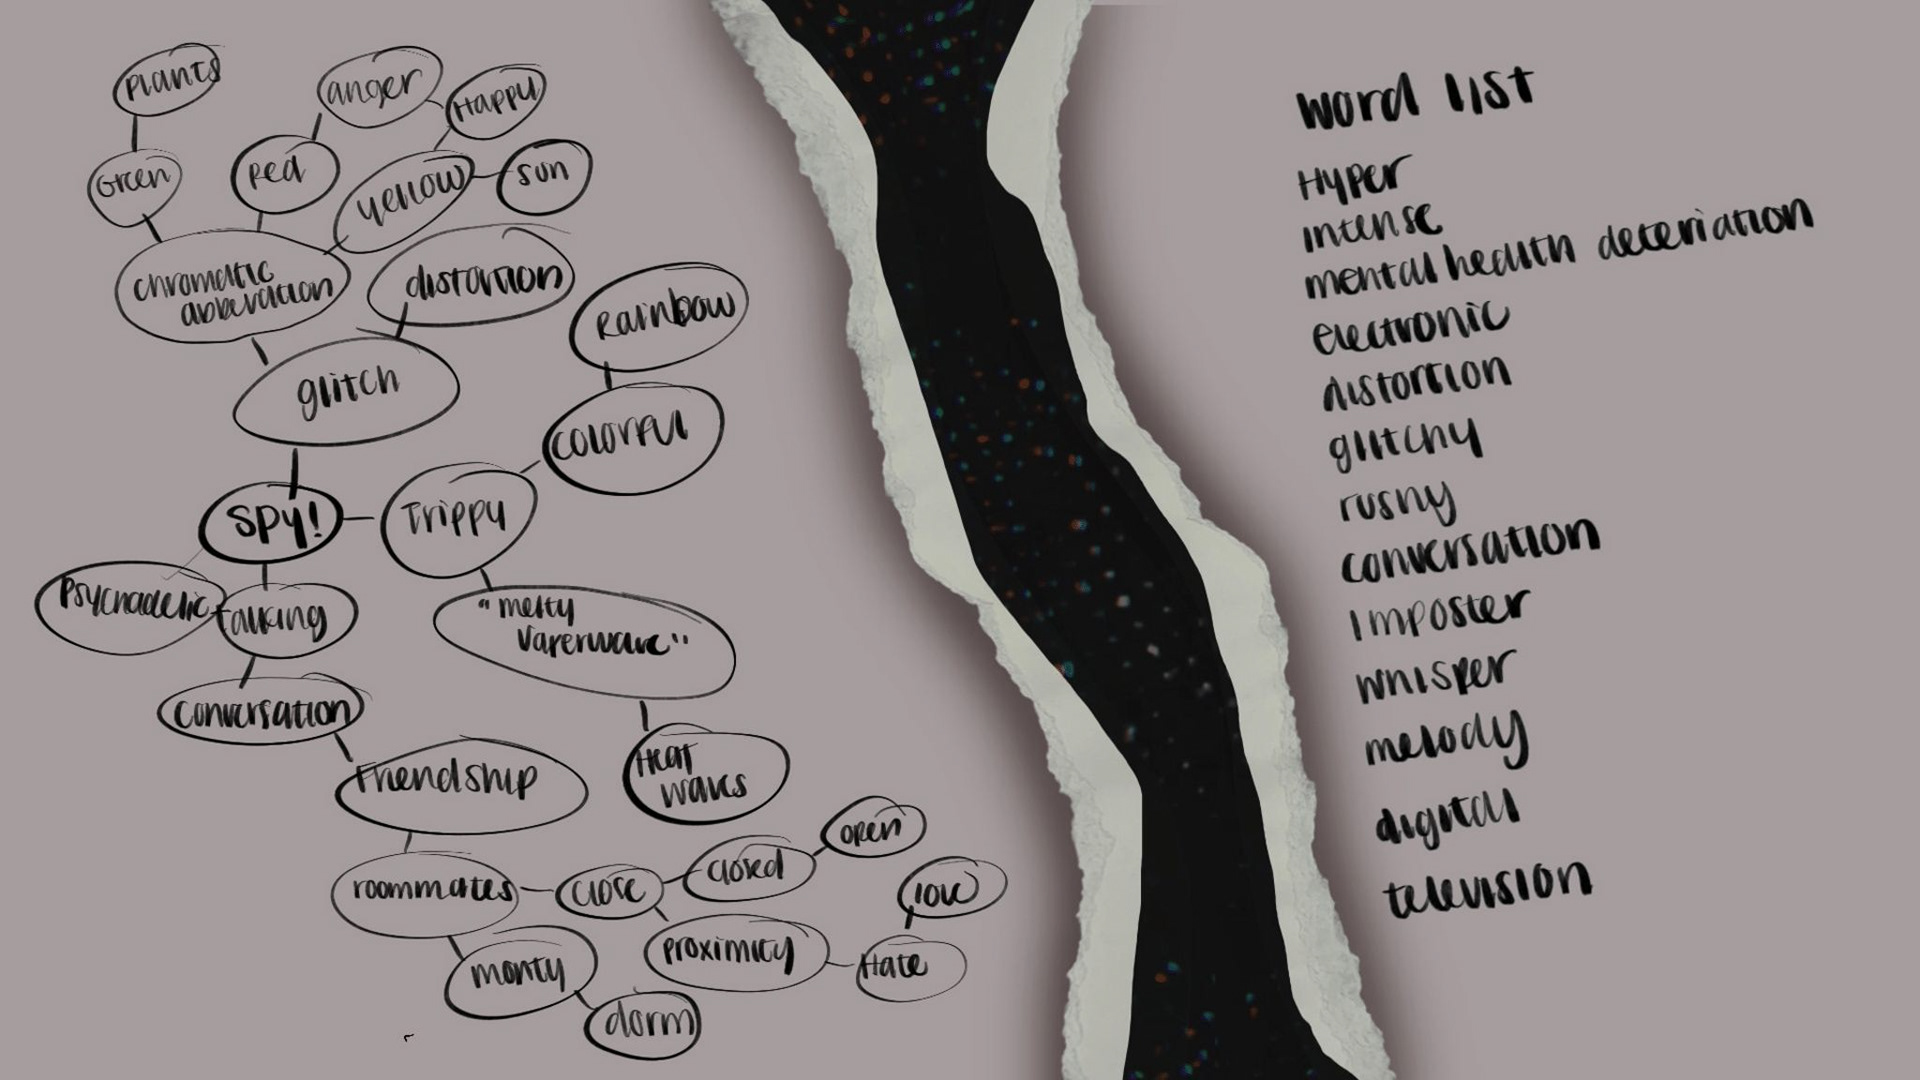 Plants
anger
Happy
Green
Red
yellow
sun
chromatic
abberation
distortion
Rainbow
glitch
colorful
SPY!
Trippy
Psychadelic
talking
"melty
vaperwave"
conversation
Friendship
Heat
waves
open
roommates
close
closed
love
monty
proximity
Hate
dorm
word list
Hyper
intense
mental health deteriation
electronic
distortion
glitchy
rushy
conversation
Imposter
whisper
melody
digital
television